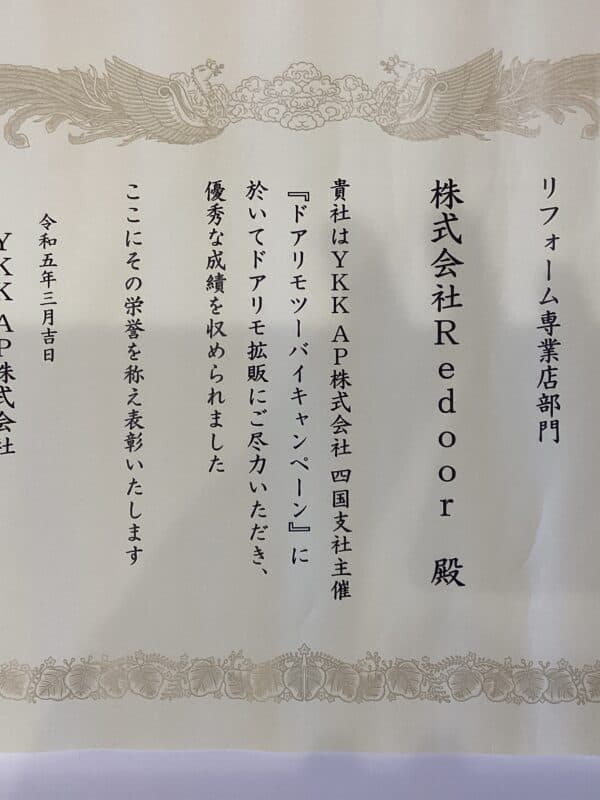 リフォーム専業店部門
株式会社Redoor 殿
貴社はYKK AP株式会社 四国支社主催
『ドアリモツーバイキャンペーン』に
於いてドアリモ拡販にご尽力いただき、
優秀な成績を収められました
ここにその栄誉を称え表彰いたします
令和五年三月吉日
YKK AP株式会社